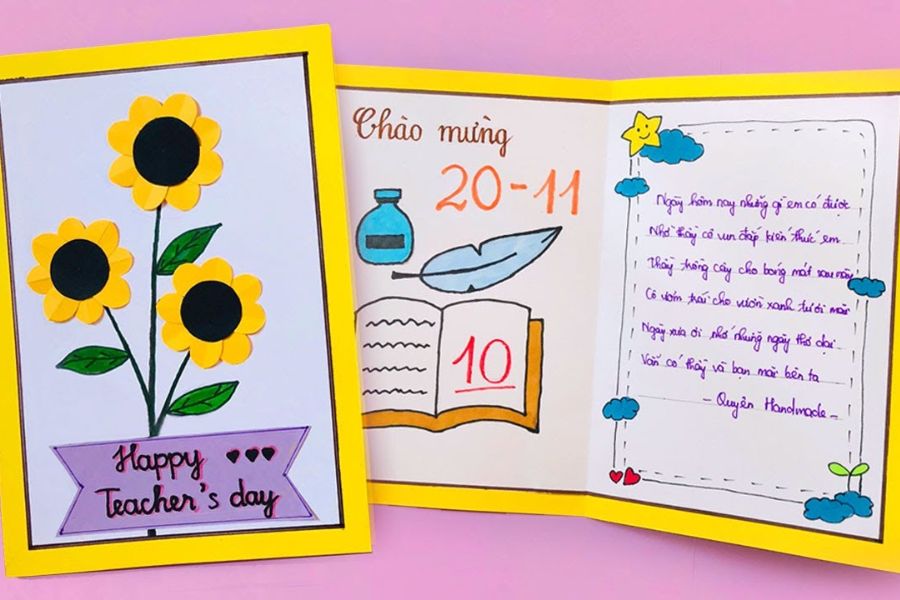 Happy
Teacher's day
Chào mừng
20-11
10
Ngày hôm nay những gì em có được
Nhờ thầy cô vun đắp kiến thức em
Thầy trồng cây cho bóng mát sau này
Cô ươm trái cho vườn xanh tươi mãi
Ngày xưa ơi nhớ những ngày thơ dại
Vẫn có thầy và bạn mãi bên ta
- Quyên Handmade -